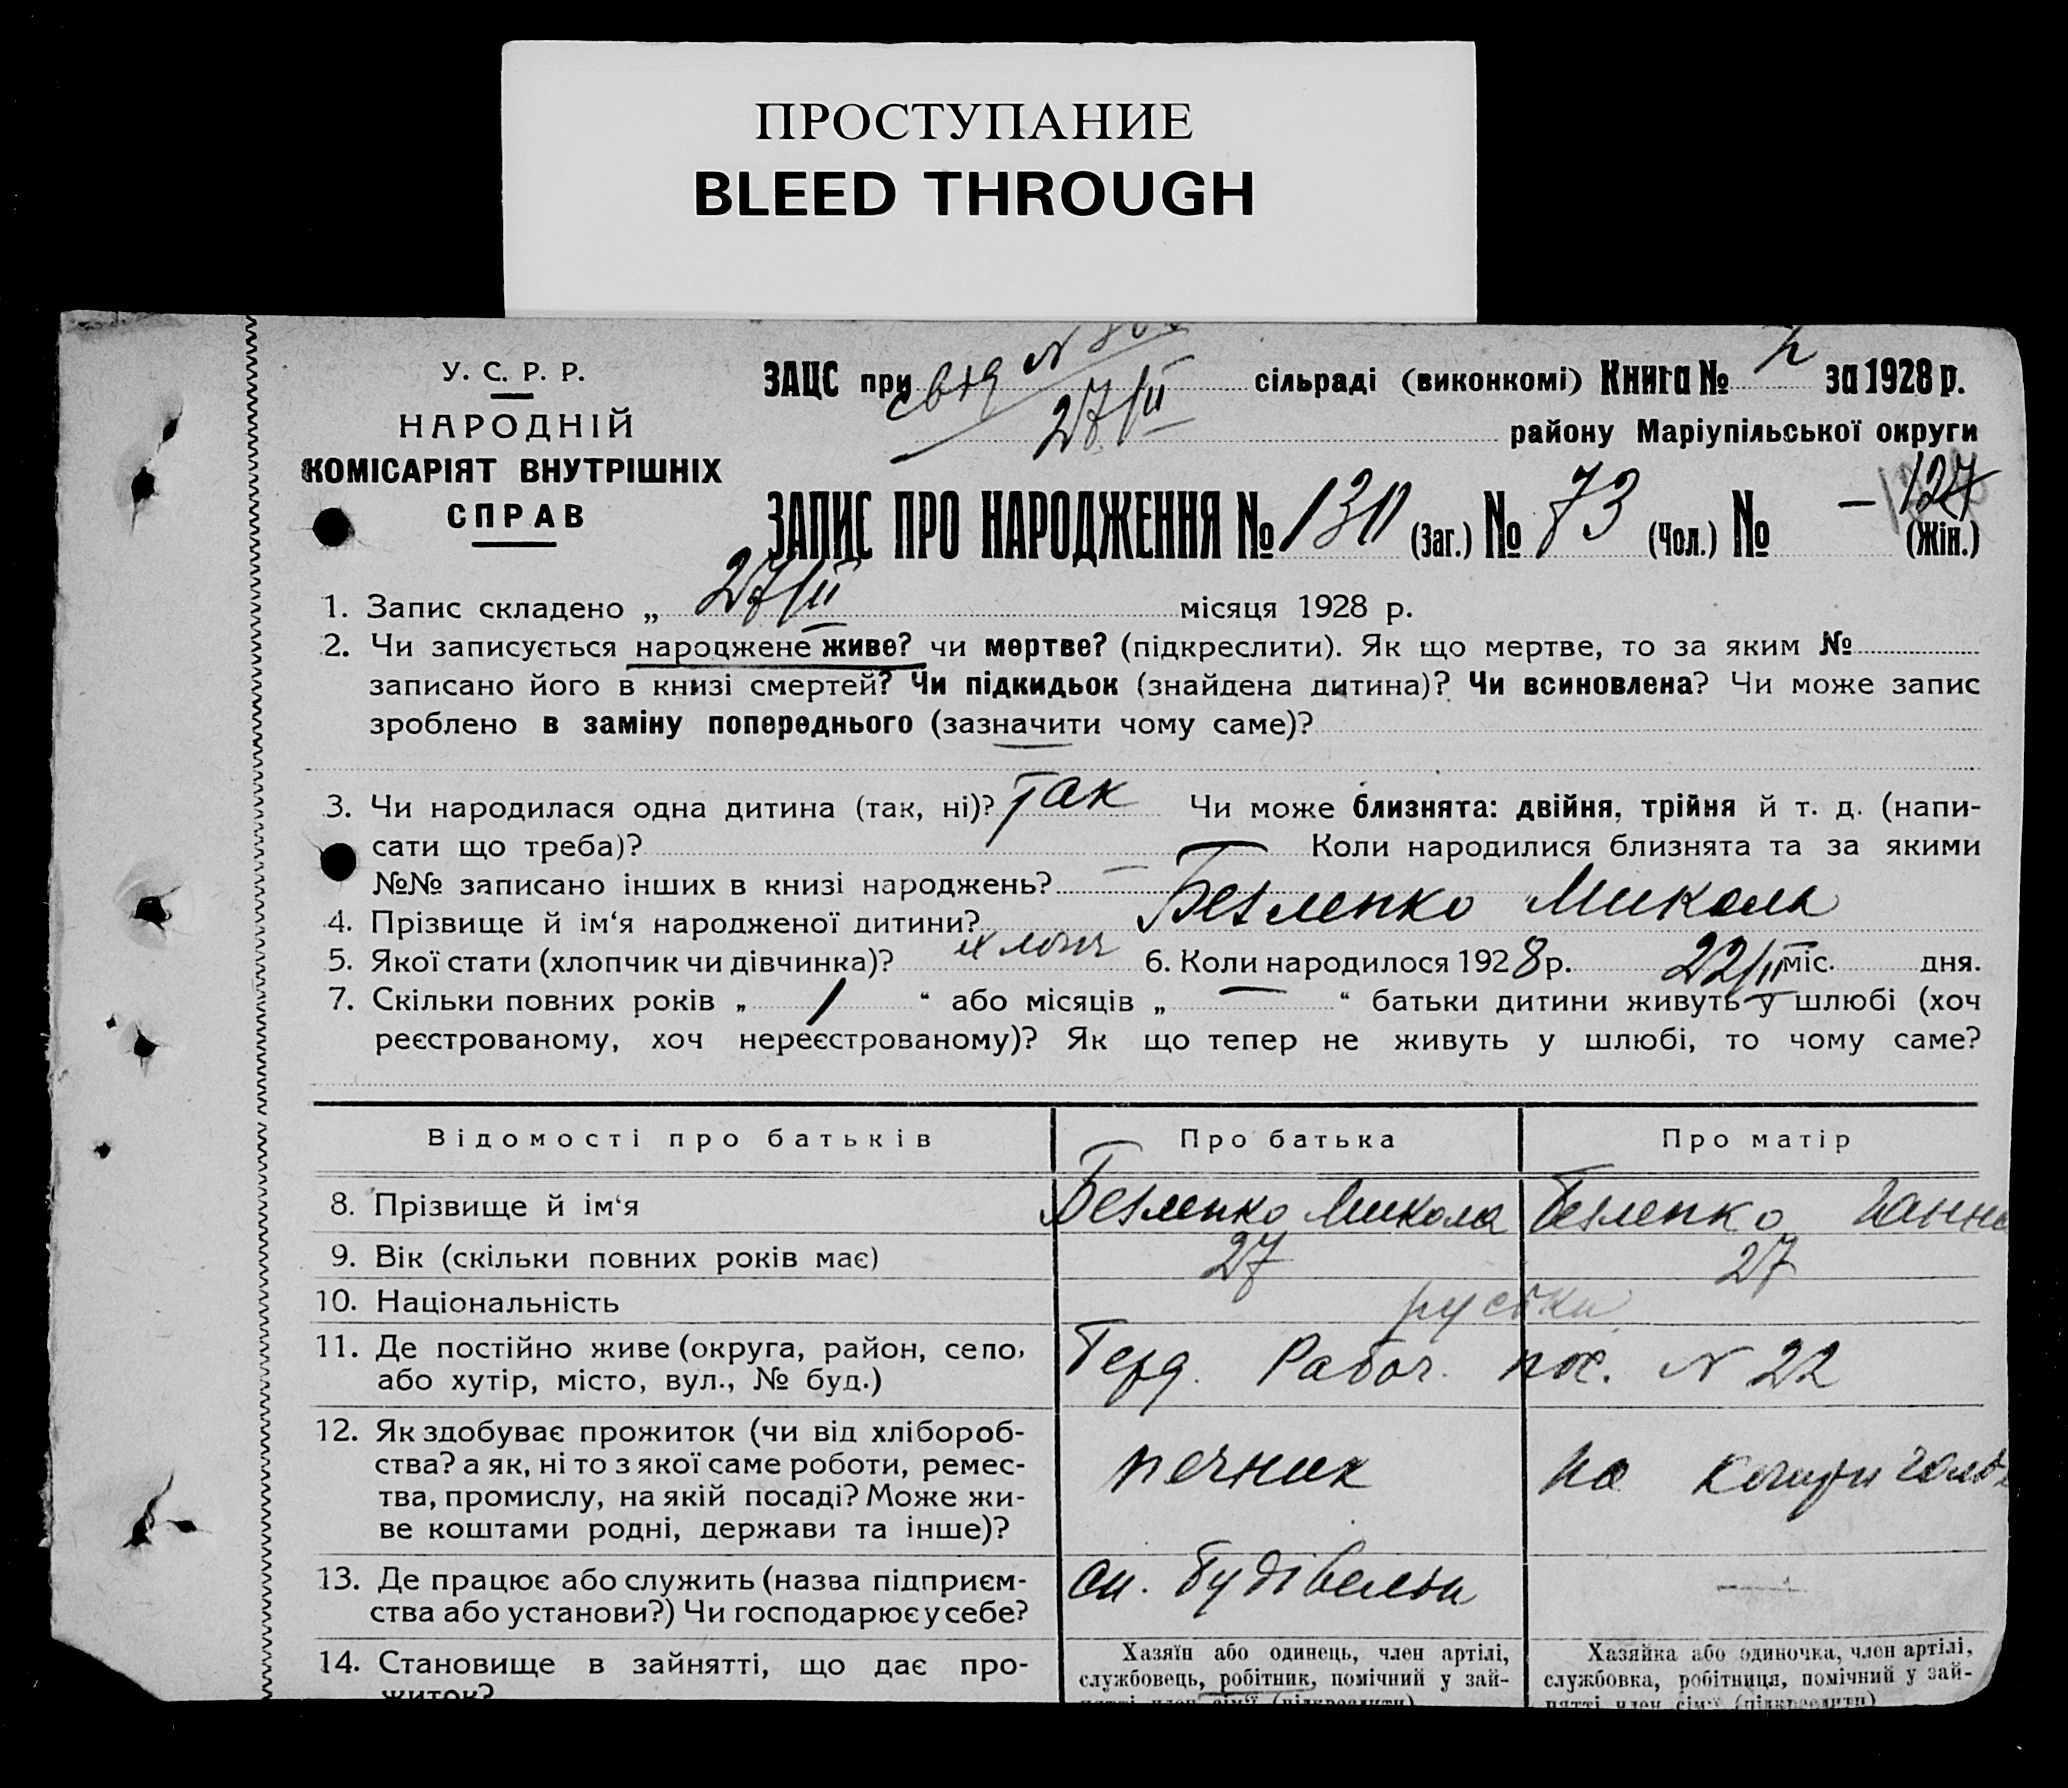 ПРОСТУПАНИЕ
BLEED THROUGH
У. С. Р. Р.
НАРОДНІЙ
КОМІСАРІЯТ ВНУТРІШНІХ
СПРАВ
ЗАЦС при сільраді (виконкомі) Книга № за 1928 р.
27/II
району Маріупільської округи
127
ЗАПИС ПРО НАРОДЖЕННЯ № 130 (Заг.) № 73 (Чол.) № — (Жін.)
1. Запис складено „ 27/II місяця 1928 р.
2. Чи записується народжене живе? чи мертве? (підкреслити). Як що мертве, то за яким №
записано його в книзі смертей? Чи підкидьок (знайдена дитина)? Чи всиновлена? Чи може запис
зроблено в заміну попереднього (зазначити чому саме)?
3. Чи народилася одна дитина (так, ні)? Так Чи може близнята: двійня, трійня й т. д. (напи-
сати що треба)? Коли народилися близнята та за якими
№№ записано інших в книзі народжень? —
4. Прізвище й ім‘я народженої дитини? Безленко Микола
5. Якої стати (хлопчик чи дівчинка)? хлопч 6. Коли народилося 1928 р. 22/II міс. дня.
7. Скільки повних років „ 1 “ або місяців „ — “ батьки дитини живуть у шлюбі (хоч
реєстрованому, хоч нереєстрованому)? Як що тепер не живуть у шлюбі, то чому саме?
Відомості про батьків Про батька Про матір
8. Прізвище й ім‘я Безленко Микола Безленко Ганна
9. Вік (скільки повних років має) 27 27
10. Національність руськи
11. Де постійно живе (округа, район, село,
або хутір, місто, вул., № буд.) Рабоч. пос. N 22
12. Як здобуває прожиток (чи від хлібороб-
ства? а як, ні то з якої саме роботи, ремес-
тва, промислу, на якій посаді? Може жи-
ве коштами родні, держави та інше)? печник на
13. Де працює або служить (назва підприєм-
ства або установи?) Чи господарює у себе? —
14. Становище в зайнятті, що дає про-
житок?
Хазяїн або одинець, член артілі,
службовець, робітник, помічний у зай-
нятті член сім‘ї (підкреслити)
Хазяйка або одиночка, член артілі,
службовка, робітниця, помічний у зай-
нятті член сім‘ї (підкреслити)